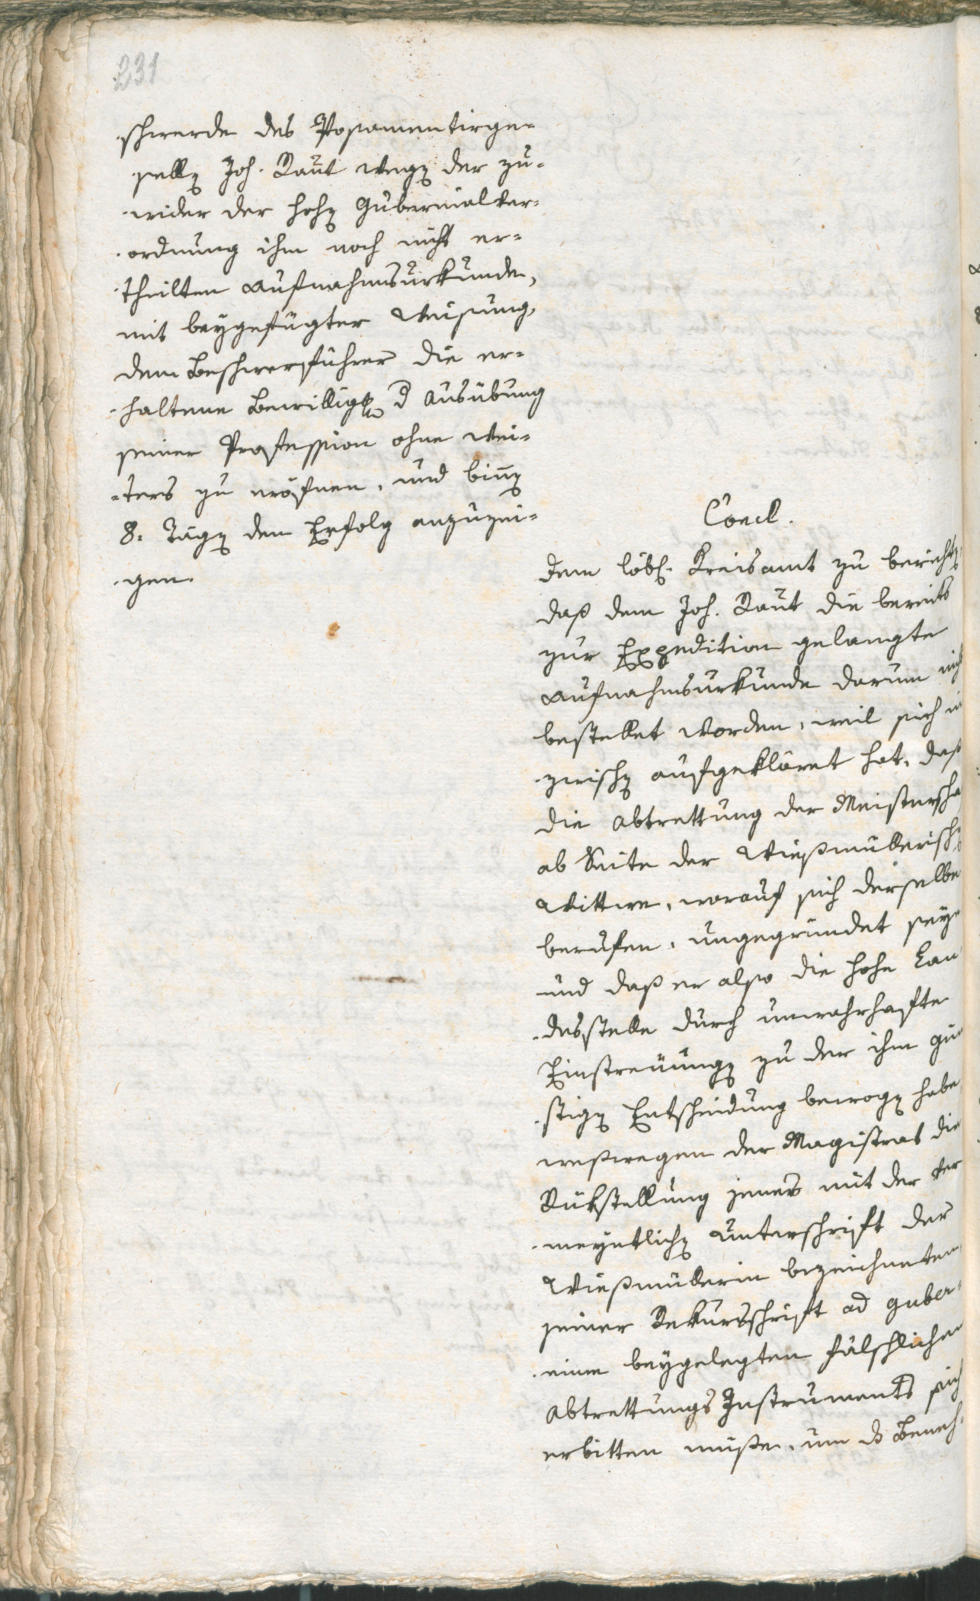 231
schwerde des Posamentirge-
sellen Joh. Raut wegen der zu-
wider der hohen Gubernialver-
ordnung ihm noch nicht er-
theilten Aufnahmsurkunde,
mit beygefügter Weisung,
dem Beschwerführer die er-
haltene Bewillig. d Ausübung
seiner Profession ohne wei-
ters zu eröfnen, und binnen
8. Tägen den Erfolg anzuzei-
gen.
Concl.
Dem löbl. Kreisamt zu berichten
daß dem Joh. Raut die bereits
zur Expedition gelangte
Aufnahmsurkunde darum nicht
bestellet worden, weil sich in
zwischen aufgekläret hat, daß
die Abtrettung der Meisterscha
ab Seite der Wießmüllerisch
Wittwe, worauf sich derselbe
berufen, ungegründet seye
und daß er also die hohe Lan
desstelle durch unwahrhafte
Einstreuungen zu der ihm gün
stigen Entscheidung bewogen habe
weßwegen der Magistrat die
Rükstellung jenes mit der ver
meyntlichen Unterschrift der
Wießmüllerin bezeichneten
seiner Rekursschrift ad guber-
nium beygelegten fälschlichen
Abtrettungs Instruments sich
erbitten müße, um ds Beneh-